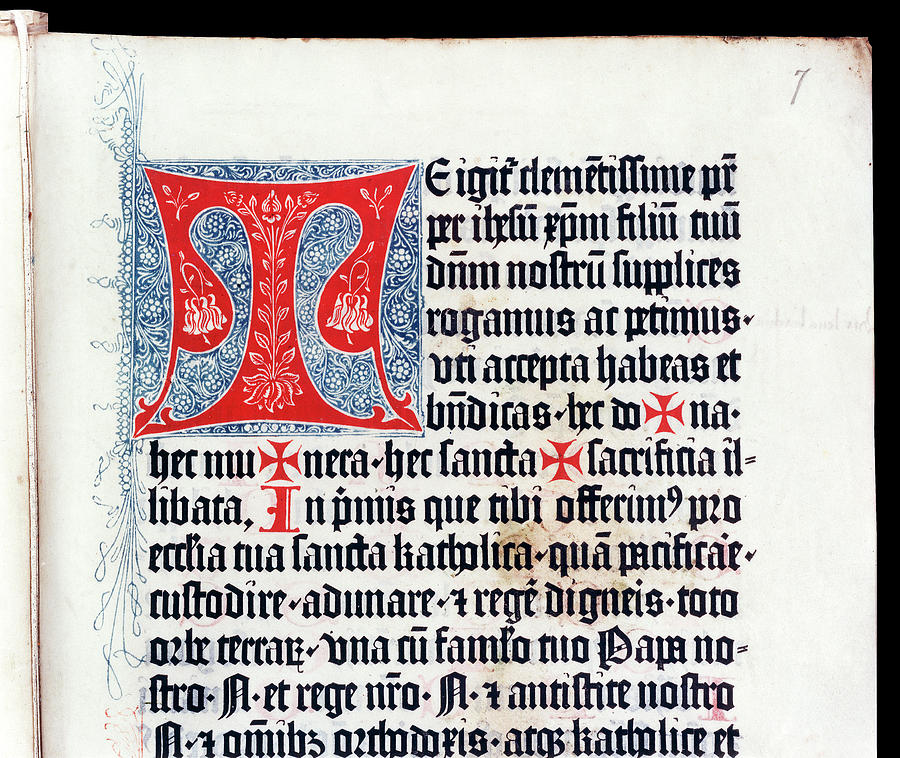 7
TEigit᷑ clemētissime pr̄
per ihesū xp̄m filiū tuū
dn̄m nostrū supplices
rogamus ac petimus·
vti accepta habeas et
bn̄dicas· hec do✠na·
hec mu✠nera· hec sancta ✠ sacrificia il⸗
libata, In p̄mis que tibi offerimꝰ pro
ecclia tua sancta katholica· quā pacificare·
custodire· adunare· ⁊ regē digneis· toto
orbe terraꝝ· vna cū famĺo tuo Papa no⸗
stro· N· et rege nr̄o· N· ⁊ antistite nostro
N· ⁊ om̄ibꝫ orthodoxis· atqꝫ katholice et